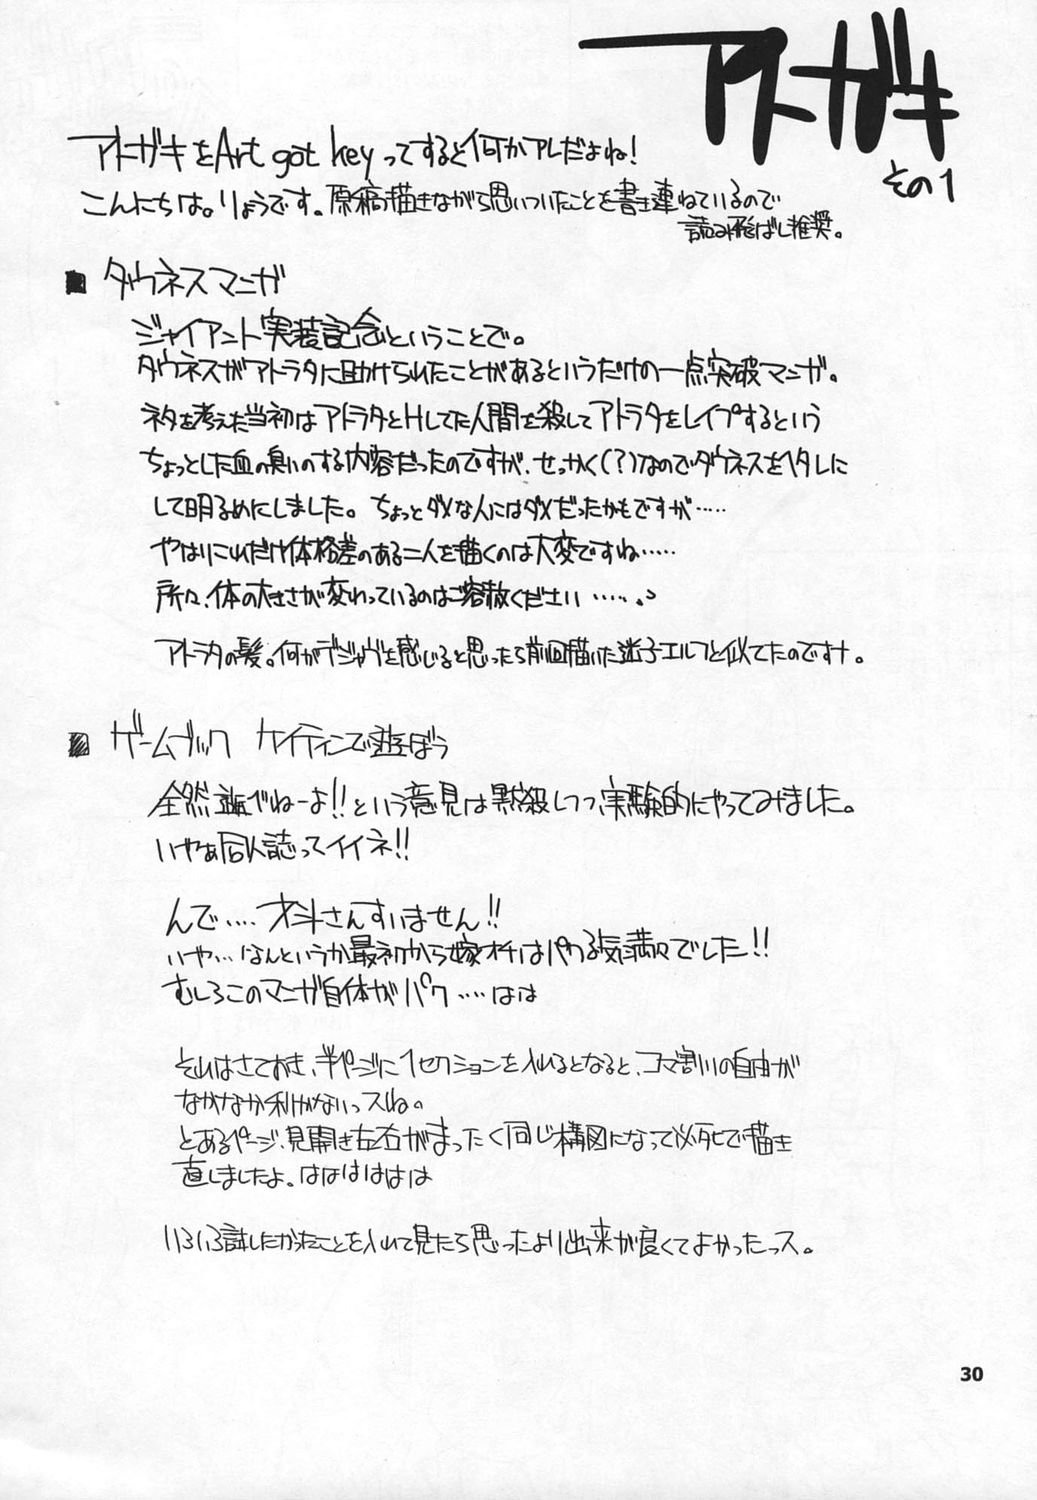 アトガキ
その1
アトガキをArt got keyってすると何かアレだよね!
こんにちは。りょうです。原稿描きながら思いついたことを書き連ねているので
読み飛ばし推奨。
■ タウネスマンガ
ジャイアント実装記念ということで。
タウネスがアトラタに助けられたことがあるというだけの一点突破マンガ。
ネタを考えた当初はアトラタとHしてた人間を殺してアトラタをレイプするという
ちょっとした血の臭いのする内容だったのですが、せっかく(?)なのでタウネスをヘタレに
して明るめにしました。ちょっとダメな人にはダメだったかもですが……
やはりこれだけ体格差のある二人を描くのは大変ですね……
所々、体の大きさが変わっているのはご容赦ください……。
アトラタの髪。何かデジャヴを感じると思ったら前回描いた迷子エルフと似てたのですナ。
■ ゲームブック ケイティンで遊ぼう
全然遊べねーよ!!という意見は黙殺しつつ実験的にやってみました。
いやぁ同人誌ってイイネ!!
んで…‥才斗さんすいません!!
いや…なんというか最初から嫁オチはパクる気満々でした!!
むしろこのマンガ自体がパク……はは
それはさておき、半ページに1セクションを入れるとなると、コマ割りの自由が
なかなか利かないっスね。
とあるページ、見開き左右がまったく同じ構図になって必死で描き
直しましたよ。はははははは
いろいろ試したかったことを入れて見たら思ったより出来が良くてよかったっス。
30